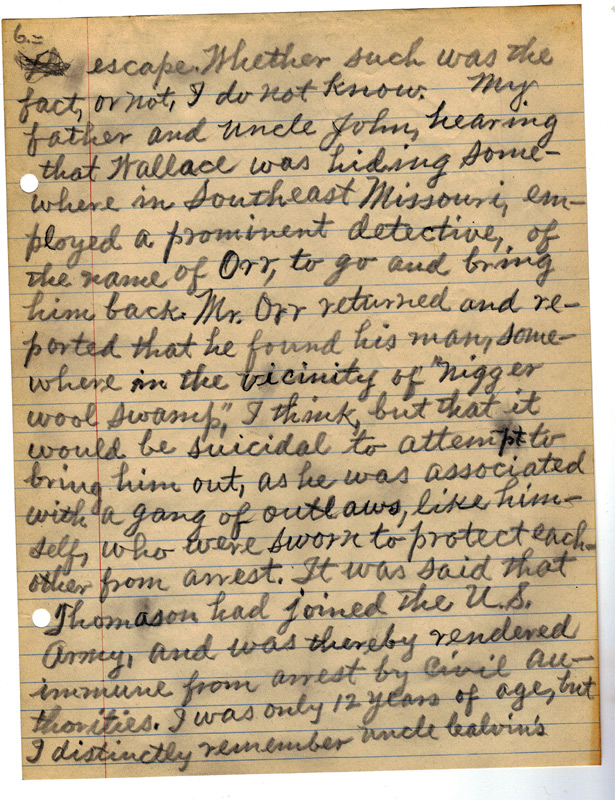 6.=
escape. Whether such was the
fact, or not, I do not know. My
father and uncle John, hearing
that Wallace was hiding some-
where in Southeast Missouri, em-
ployed a prominent detective, of
the name of Orr, to go and bring
him back. Mr. Orr returned and re-
ported that he found his man, some-
where in the vicinity of "nigger
wool swamp", I think, but that it
would be suicidal to attempt to
bring him out, as he was associated
with a gang of outlaws, like him-
self, who were sworn to protect each-
other from arrest. It was said that
Thomason had joined the U.S.
Army, and was thereby rendered
immune from arrest by civil au-
thorities. I was only 12 years of age, but
I distinctly remember uncle Calvin's